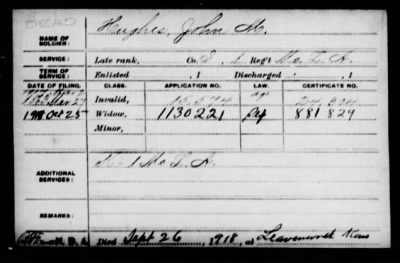 DEAD
NAME OF SOLDIER: Hughes, John M.
SERVICE: Late rank, Co. I, 1 Reg't Mo. L. A.
TERM OF SERVICE: Enlisted , 1 Discharged , 1
DATE OF FILING. CLASS. APPLICATION NO. LAW. CERTIFICATE NO.
Invalid,
1918 Oct 25 Widow, 1130221 881829
Minor,
ADDITIONAL SERVICES: K-1 Mo L. A.
REMARKS:
Died Sept 26, 1918, at Leavenworth Kans